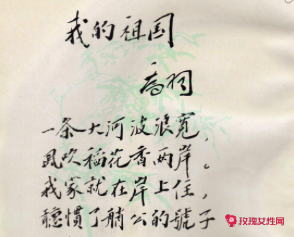 我的祖国
喬羽
一条大河波浪宽，
風吹稻花香两岸。
我家就在岸上住，
聽慣了艄公的號子
玫瑰女性网